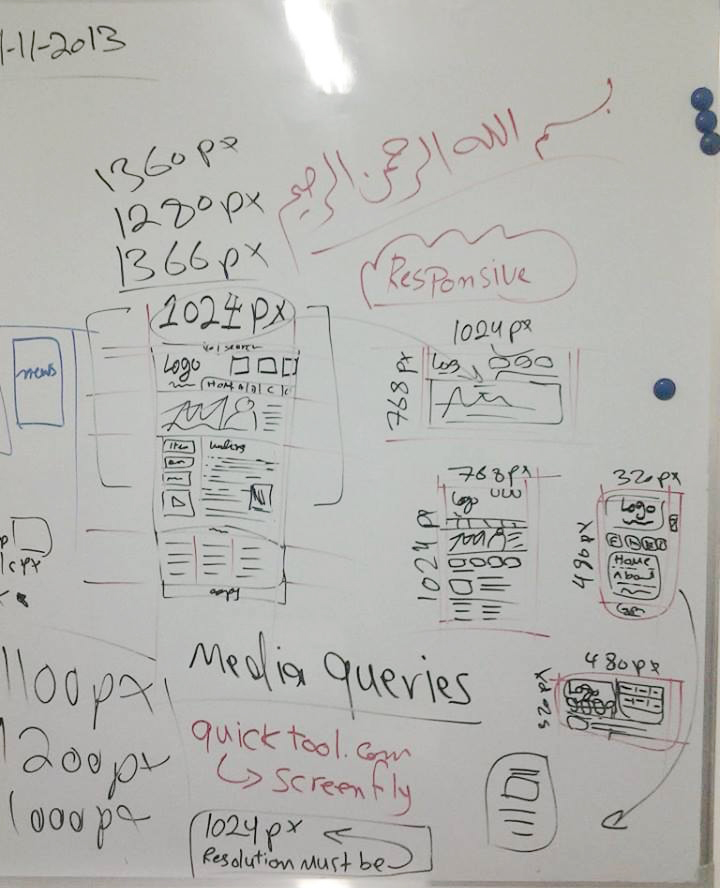 1-11-2013
بسم الله الرحمن الرحيم
1360px
1280px
1366px
1024px
Responsive
search
Logo
Home
news
1024px
768px
Log
768px
1024px
Logo
320px
480px
Logo
Home
About
480px
320px
Media queries
1100px
1200px
1000px
quicktool.com
screenfly
1024px
Resolution must be